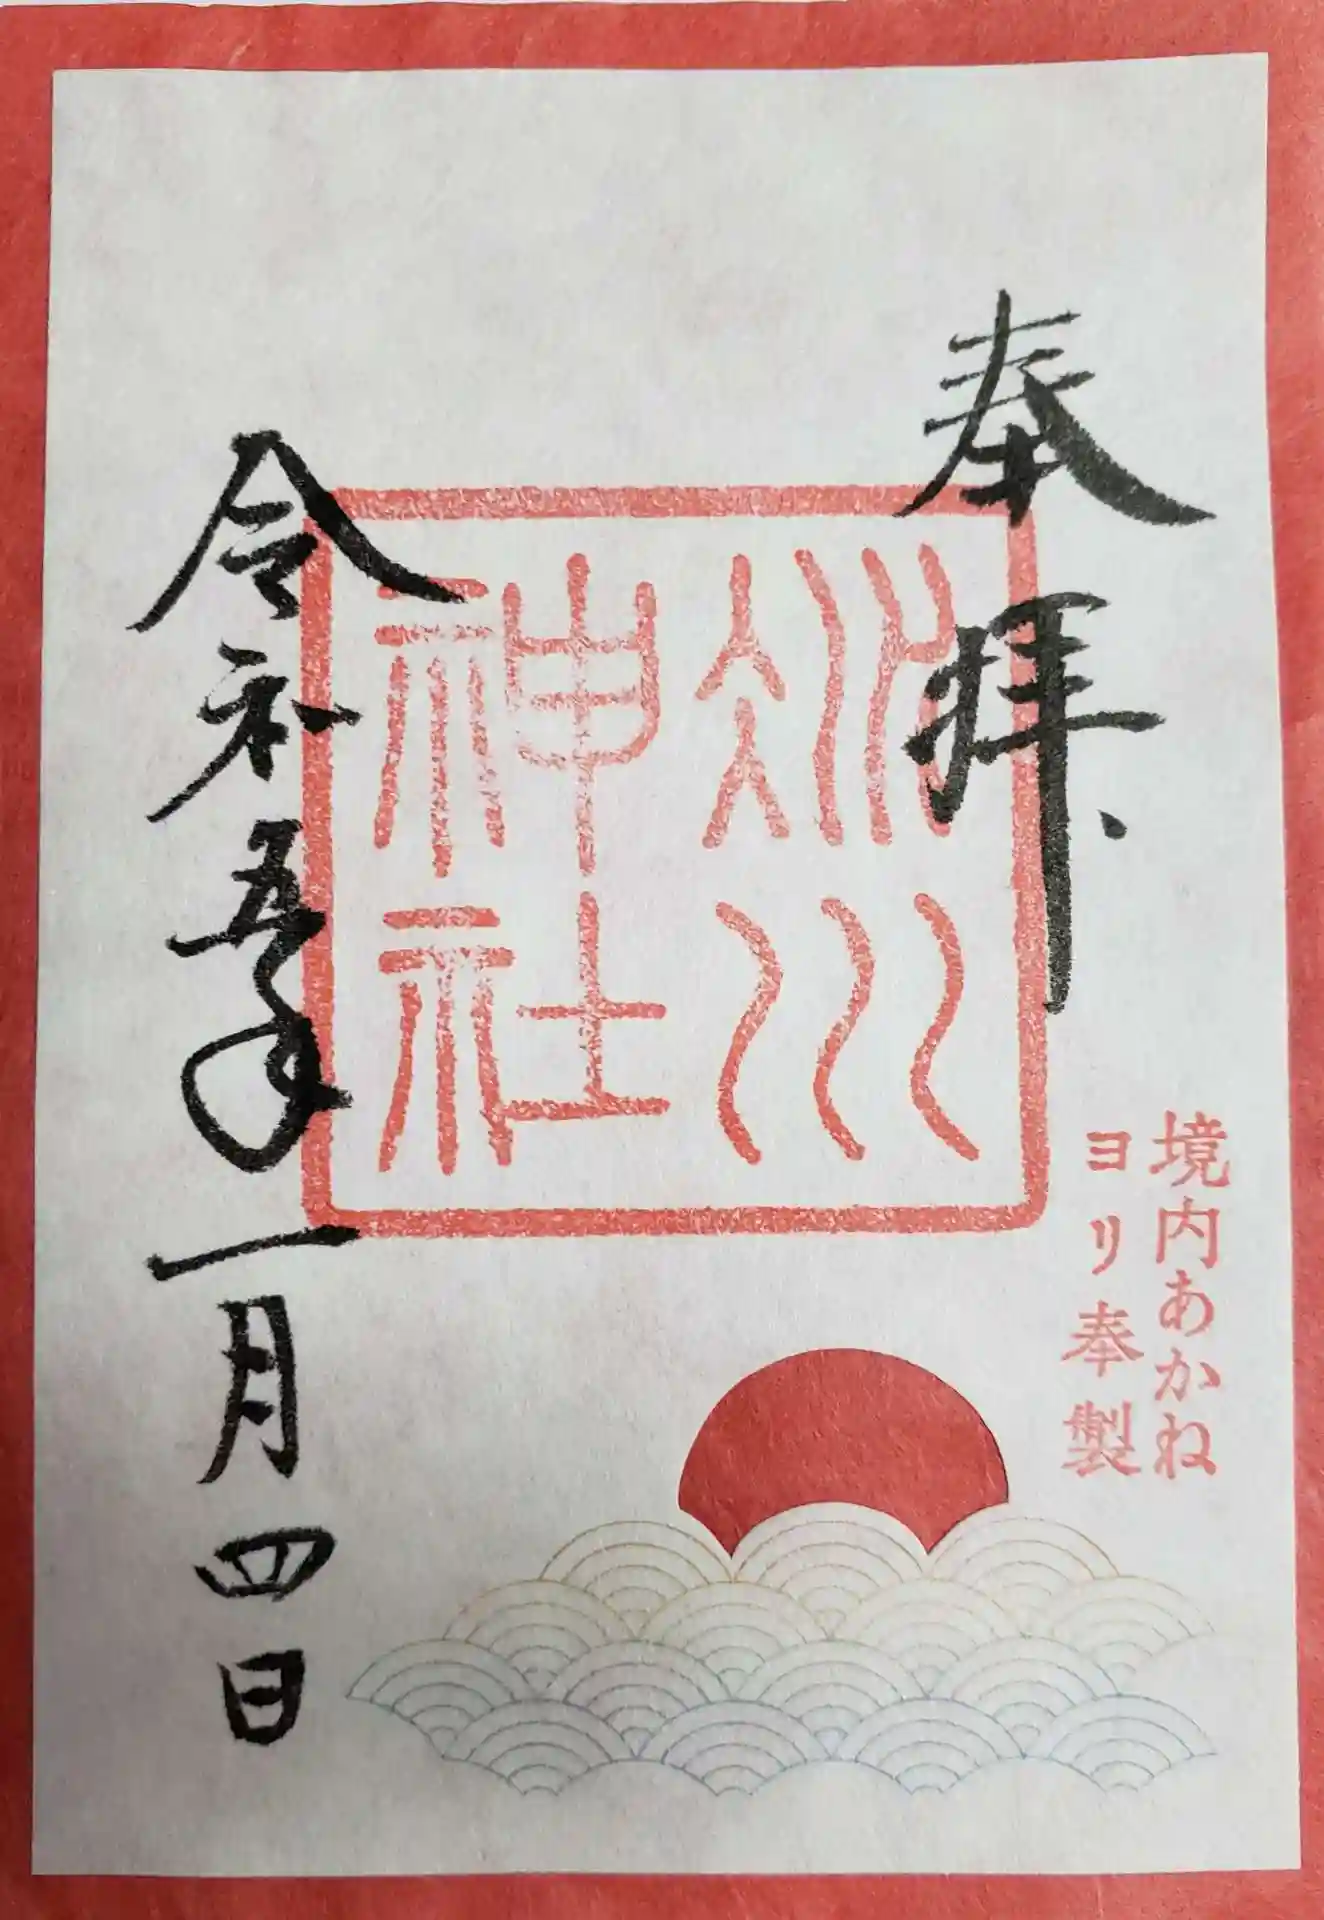 奉拝
境内あかね
ヨリ奉製
冰川
神社
令和五年一月四日